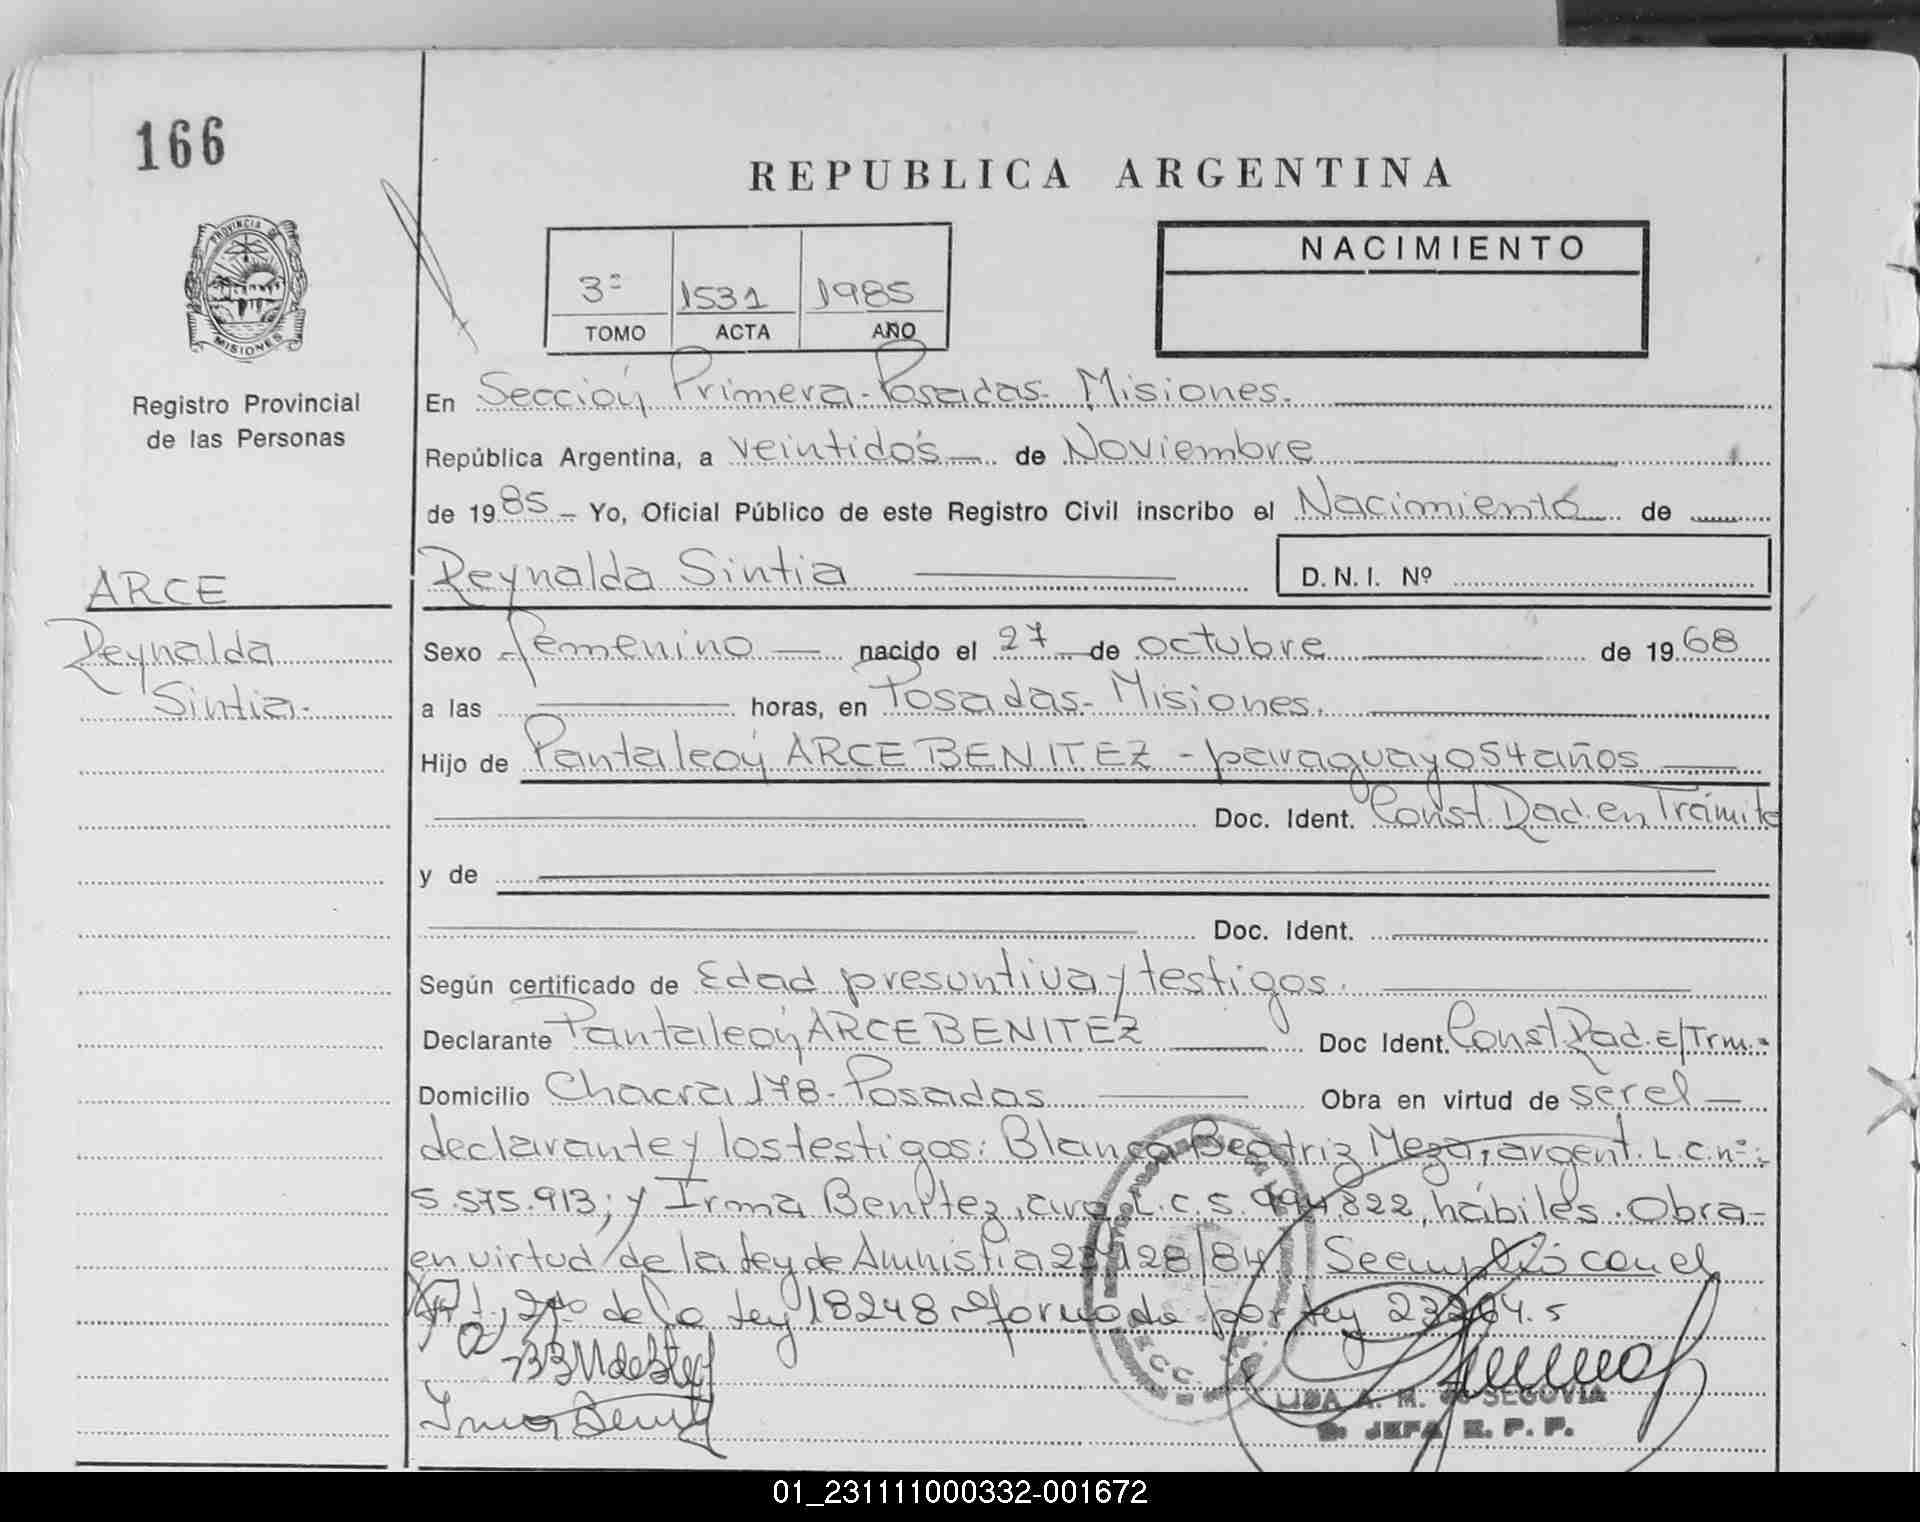 166
REPUBLICA ARGENTINA
PROVINCIA DE
MISIONES
3º 1531 1985
TOMO ACTA AÑO
NACIMIENTO
Registro Provincial
de las Personas
En Sección Primera - Posadas - Misiones.
República Argentina, a veintidós de Noviembre
de 1985 - Yo, Oficial Público de este Registro Civil inscribo el Nacimiento de
Reynalda Sintia
D.N.I. Nº
ARCE
Reynalda
Sintia.
Sexo femenino nacido el 27 de octubre de 1968
a las horas, en Posadas - Misiones.
Hijo de Pantaleón ARCE BENITEZ - paraguayo 54 años
Doc. Ident. Const. Rad. en Trámite
y de
Doc. Ident.
Según certificado de Edad presuntiva y testigos.
Declarante Pantaleón ARCE BENITEZ Doc Ident. Const Rad. E/Trm.
Domicilio Chacra 178 - Posadas Obra en virtud de ser el
declarante y los testigos: Blanca Beatriz Meza, argent. L.C. nº
5.575.913; y Irma Benitez, L.C. 5.994.822, hábiles. Obra
en virtud de la Ley de Amnistia /84 Se cumplió con el
Art. 2do de la Ley 18248 reformada por Ley 23264.s
LIDA A. M. DE SEGOVIA
JEFA R. P. P.
01_231111000332-001672